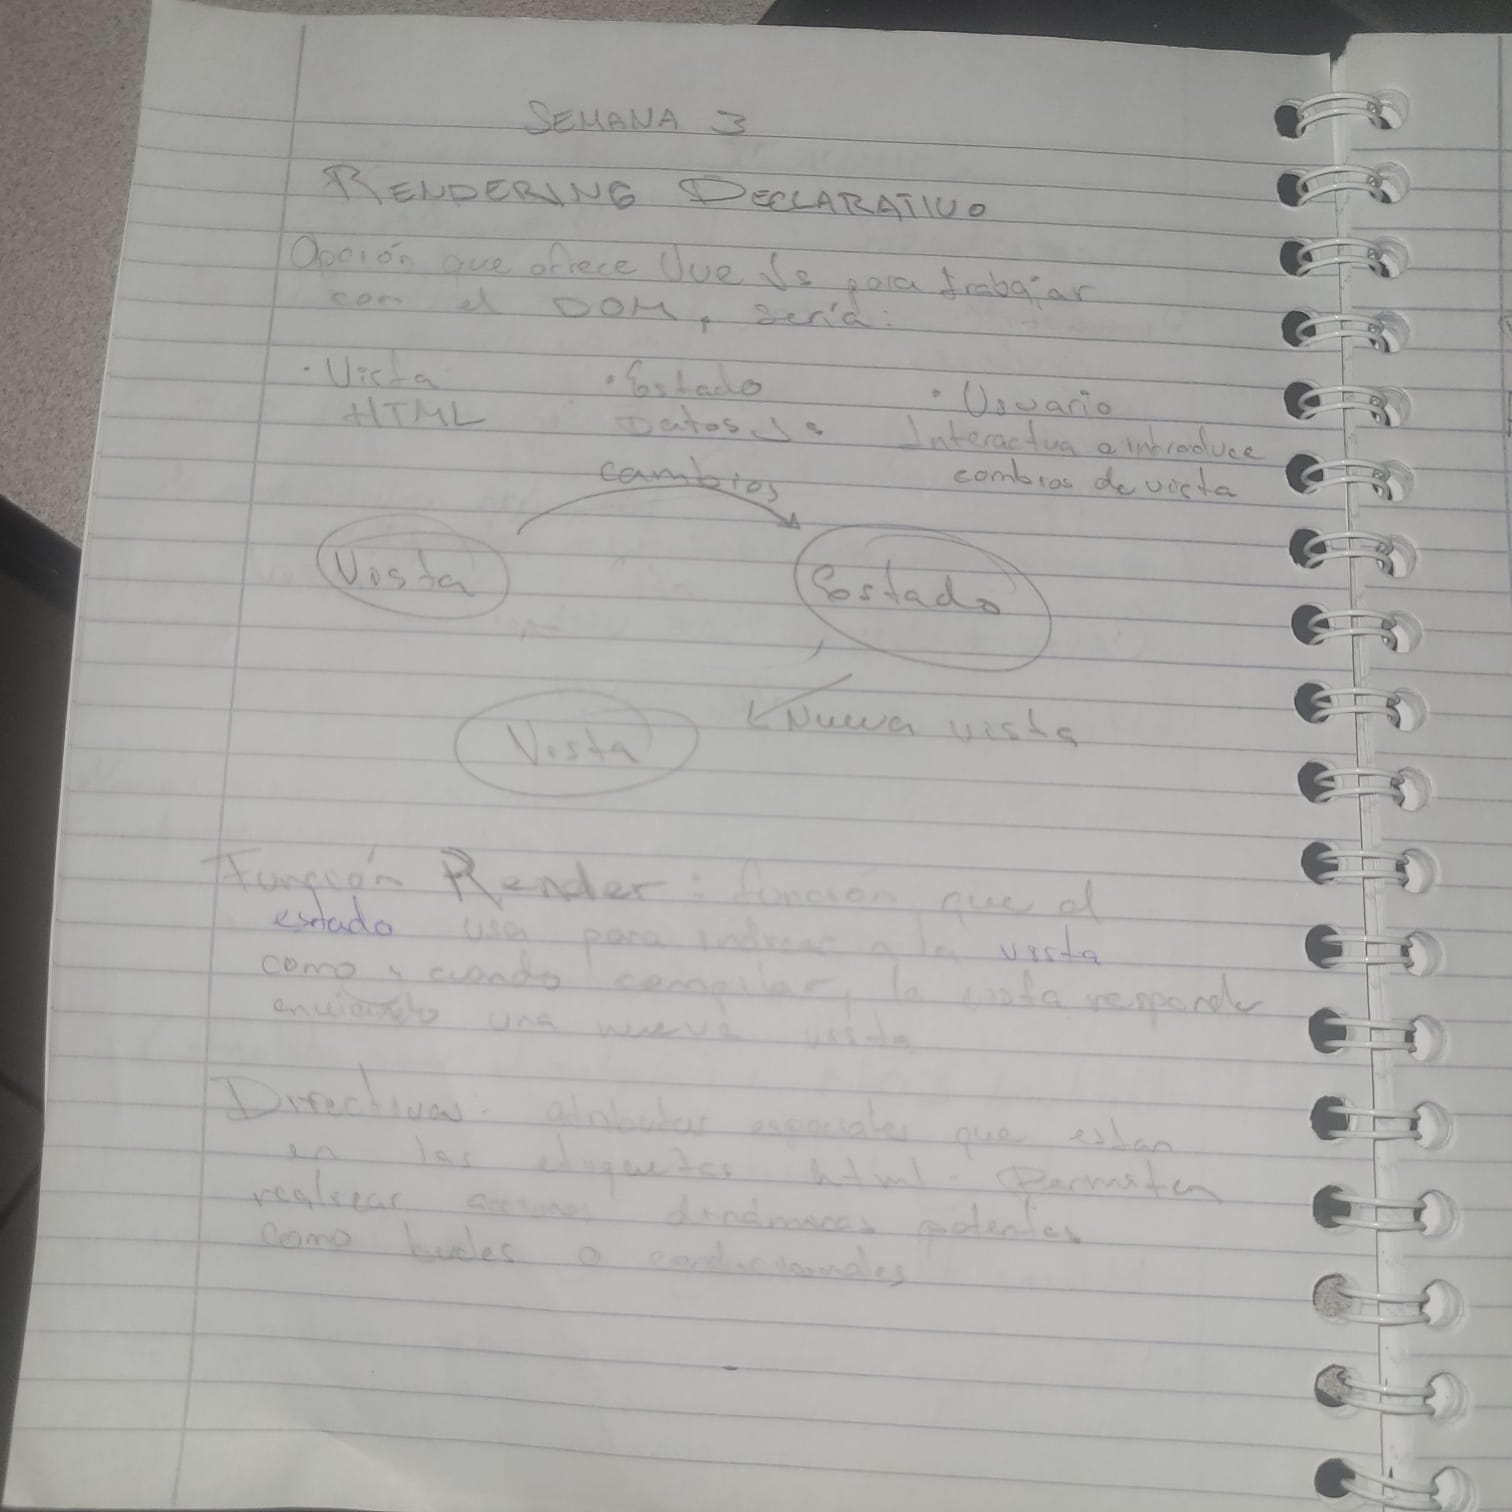 SEMANA 3
RENDERING DECLARATIVO
Opción que ofrece Vue Js para trabajar
con el DOM, sería:
· Vista · Estado · Usuario
HTML Datos Js Interactua e introduce
cambios cambios de vista
Vista Estado
Nueva vista
Vista
Función Render: función que el
estado usa para indicar a la vista
como y cuando compilar, la vista responde
enviando una nueva vista
Directivas: atributos especiales que estan
en las etiquetas html. Permiten
realizar acciones dinámicas potentes
como bucles o condicionales